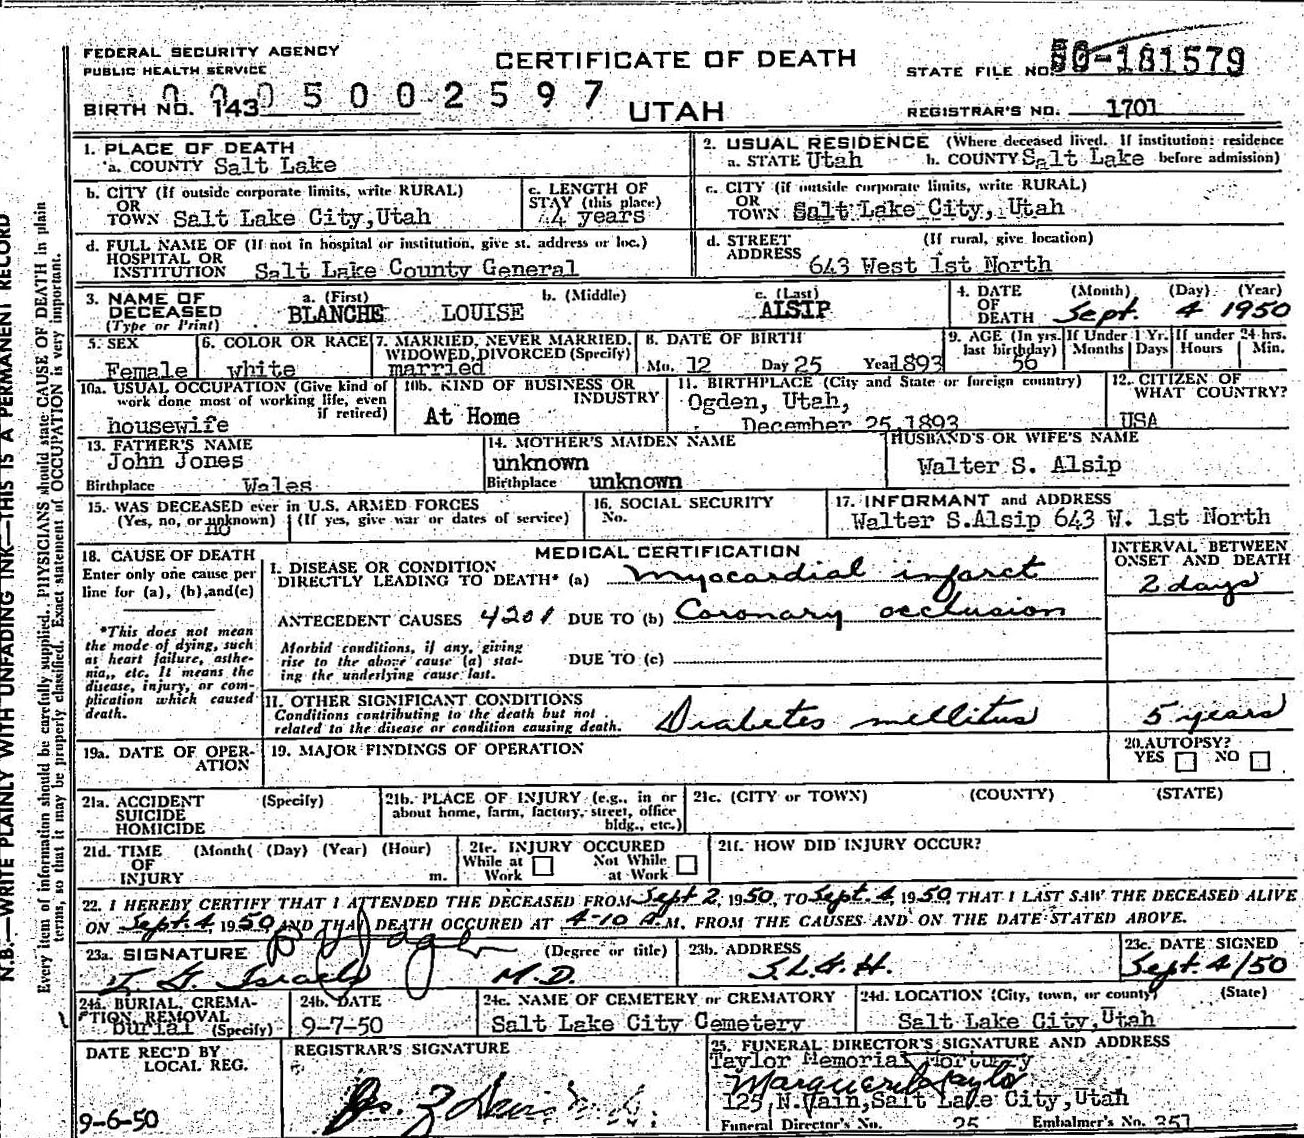 FEDERAL SECURITY AGENCY
PUBLIC HEALTH SERVICE
CERTIFICATE OF DEATH
STATE FILE NO. 50-181579
005002597
BIRTH NO. 143
UTAH
REGISTRAR'S NO. 1701
1. PLACE OF DEATH
a. COUNTY Salt Lake
2. USUAL RESIDENCE (Where deceased lived. If institution: residence
a. STATE Utah b. COUNTY Salt Lake before admission)
b. CITY (If outside corporate limits, write RURAL)
OR
TOWN Salt Lake City, Utah
c. LENGTH OF
STAY (this place)
4 years
c. CITY (if outside corporate limits, write RURAL)
OR
TOWN Salt Lake City, Utah
d. FULL NAME OF (If not in hospital or institution, give st. address or loc.)
HOSPITAL OR
INSTITUTION Salt Lake County General
d. STREET (If rural, give location)
ADDRESS
643 West 1st North
3. NAME OF DECEASED
(Type or Print)
a. (First) b. (Middle) c. (Last)
BLANCHE LOUISE ALSIP
4. DATE OF DEATH (Month) (Day) (Year)
Sept. 4 1950
5. SEX
Female
6. COLOR OR RACE
white
7. MARRIED, NEVER MARRIED,
WIDOWED, DIVORCED (Specify)
married
8. DATE OF BIRTH
Mo. 12 Day 25 Year 1893
9. AGE (In yrs. last birthday)
56
If Under 1 Yr.
Months Days
If under 24 hrs.
Hours Min.
10a. USUAL OCCUPATION (Give kind of
work done most of working life, even
if retired)
housewife
10b. KIND OF BUSINESS OR
INDUSTRY
At Home
11. BIRTHPLACE (City and State or foreign country)
Ogden, Utah,
December 25, 1893
12. CITIZEN OF
WHAT COUNTRY?
USA
13. FATHER'S NAME
John Jones
Birthplace Wales
14. MOTHER'S MAIDEN NAME
unknown
Birthplace unknown
HUSBAND'S OR WIFE'S NAME
Walter S. Alsip
15. WAS DECEASED ever in U.S. ARMED FORCES
(Yes, no, or unknown) (If yes, give war or dates of service)
no
16. SOCIAL SECURITY
No.
17. INFORMANT and ADDRESS
Walter S.Alsip 643 W. 1st North
18. CAUSE OF DEATH
Enter only one cause per
line for (a), (b), and (c)
*This does not mean
the mode of dying, such
as heart failure, asthe-
nia, etc. It means the
disease, injury, or com-
plication which caused
death.
MEDICAL CERTIFICATION
INTERVAL BETWEEN
ONSET AND DEATH
I. DISEASE OR CONDITION
DIRECTLY LEADING TO DEATH* (a) myocardial infarct
2 days
ANTECEDENT CAUSES 4201 DUE TO (b) Coronary occlusion
Morbid conditions, if any, giving
rise to the above cause (a) stat-
ing the underlying cause last.
DUE TO (c)
II. OTHER SIGNIFICANT CONDITIONS
Conditions contributing to the death but not
related to the disease or condition causing death.
Diabetes mellitus
5 years
19a. DATE OF OPER-
ATION
19. MAJOR FINDINGS OF OPERATION
20. AUTOPSY?
YES NO
21a. ACCIDENT (Specify)
SUICIDE
HOMICIDE
21b. PLACE OF INJURY (e.g., in or
about home, farm, factory, street, office
bldg., etc.)
21c. (CITY or TOWN) (COUNTY) (STATE)
21d. TIME (Month( (Day) (Year) (Hour)
OF
INJURY m.
21e. INJURY OCCURED
While at Work Not While at Work
21f. HOW DID INJURY OCCUR?
22. I HEREBY CERTIFY THAT I ATTENDED THE DECEASED FROM Sept 2, 1950, TO Sept. 4, 1950 THAT I LAST SAW THE DECEASED ALIVE
ON Sept. 4 1950 AND THAT DEATH OCCURED AT 4-10 A.M, FROM THE CAUSES AND ON THE DATE STATED ABOVE.
23a. SIGNATURE (Degree or title)
Israels M.D.
23b. ADDRESS
S.L.G.H.
23c. DATE SIGNED
Sept. 4/50
24a. BURIAL, CREMA-
TION REMOVAL
burial (Specify)
24b. DATE
9-7-50
24c. NAME OF CEMETERY or CREMATORY
Salt Lake City Cemetery
24d. LOCATION (City, town, or county) (State)
Salt Lake City, Utah
DATE REC'D BY
LOCAL REG.
9-6-50
REGISTRAR'S SIGNATURE
25. FUNERAL DIRECTOR'S SIGNATURE AND ADDRESS
Taylor Memorial Mortuary
Marguerite Taylor
125 N.Main, Salt Lake City, Utah
Funeral Director's No. 25 Embalmer's No. 351
N.B.—WRITE PLAINLY WITH UNFADING INK—THIS IS A PERMANENT RECORD
Every item of information should be carefully supplied. PHYSICIANS should state CAUSE OF DEATH in plain
terms, so that it may be properly classified. Exact statement of OCCUPATION is very important.